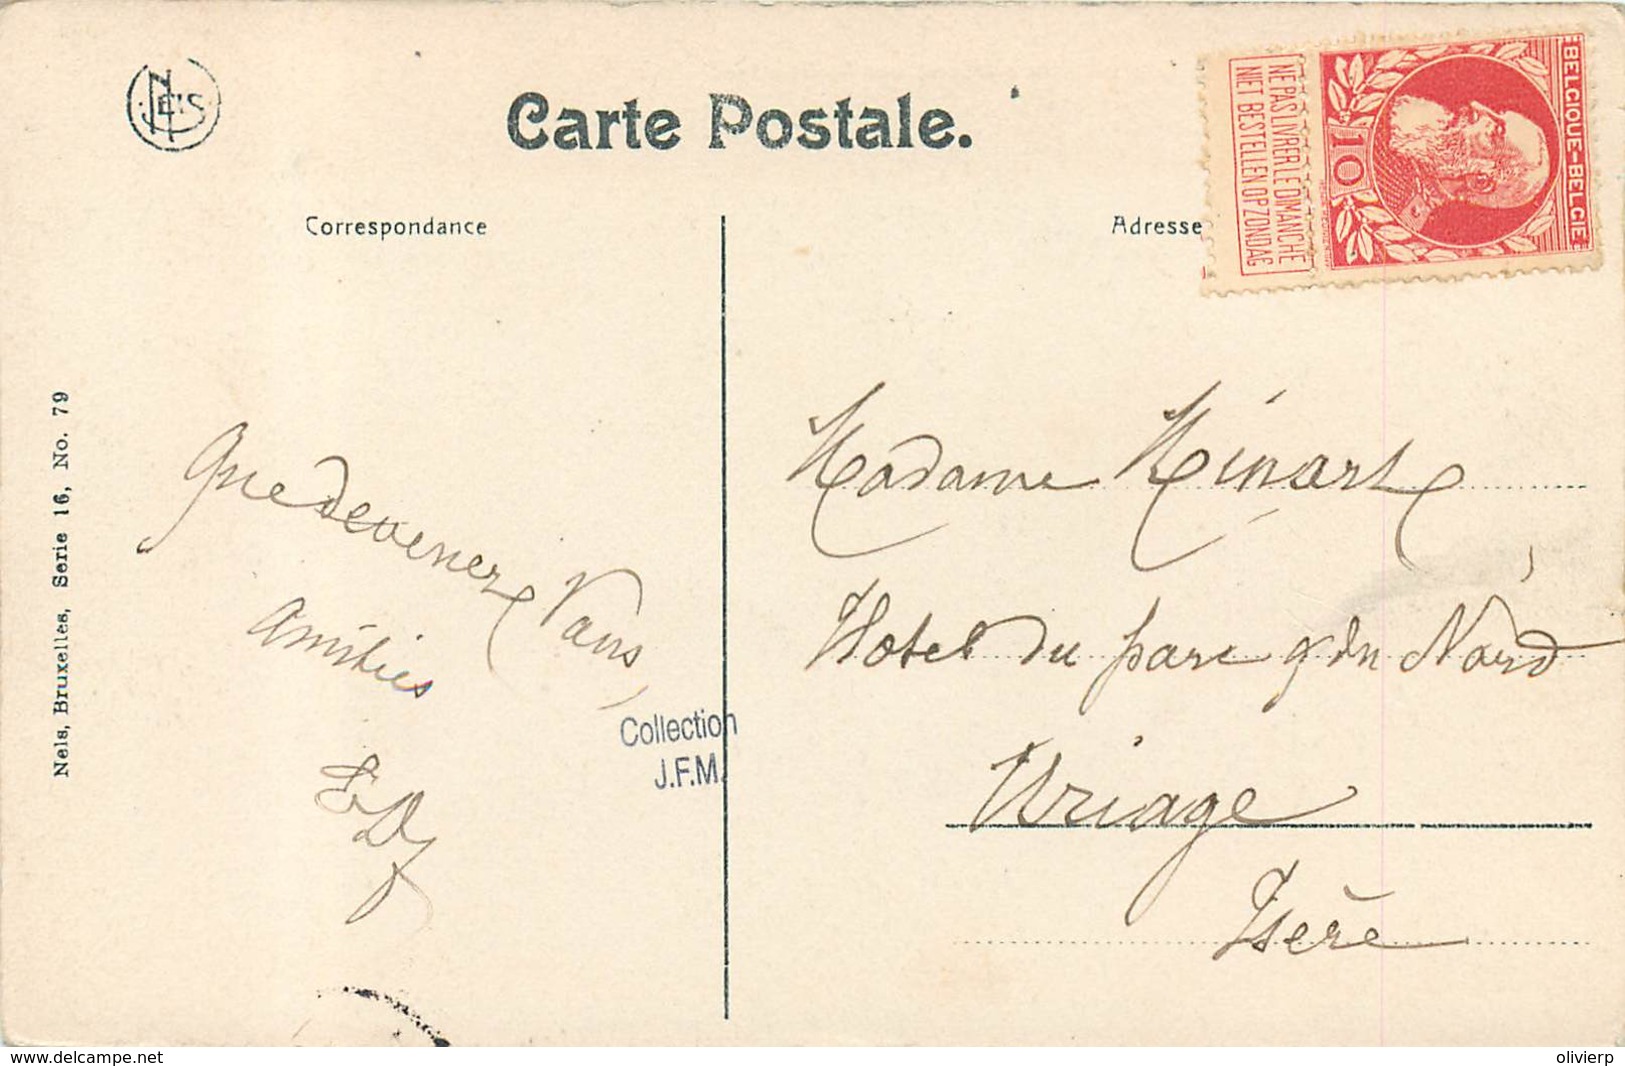 NELS
Carte Postale.
Correspondance
Adresse
BELGIQUE-BELGIË
10
NE PAS LIVRER LE DIMANCHE
NIET BESTELLEN OP ZONDAG
Nels, Bruxelles, Serie 16, No. 79
Que devenez Vous,
Amitiés
Collection
J.F.M.
Madame Minart
Hotel du parc & du Nord
Uriage
Isère
www.delcampe.net
olivierp